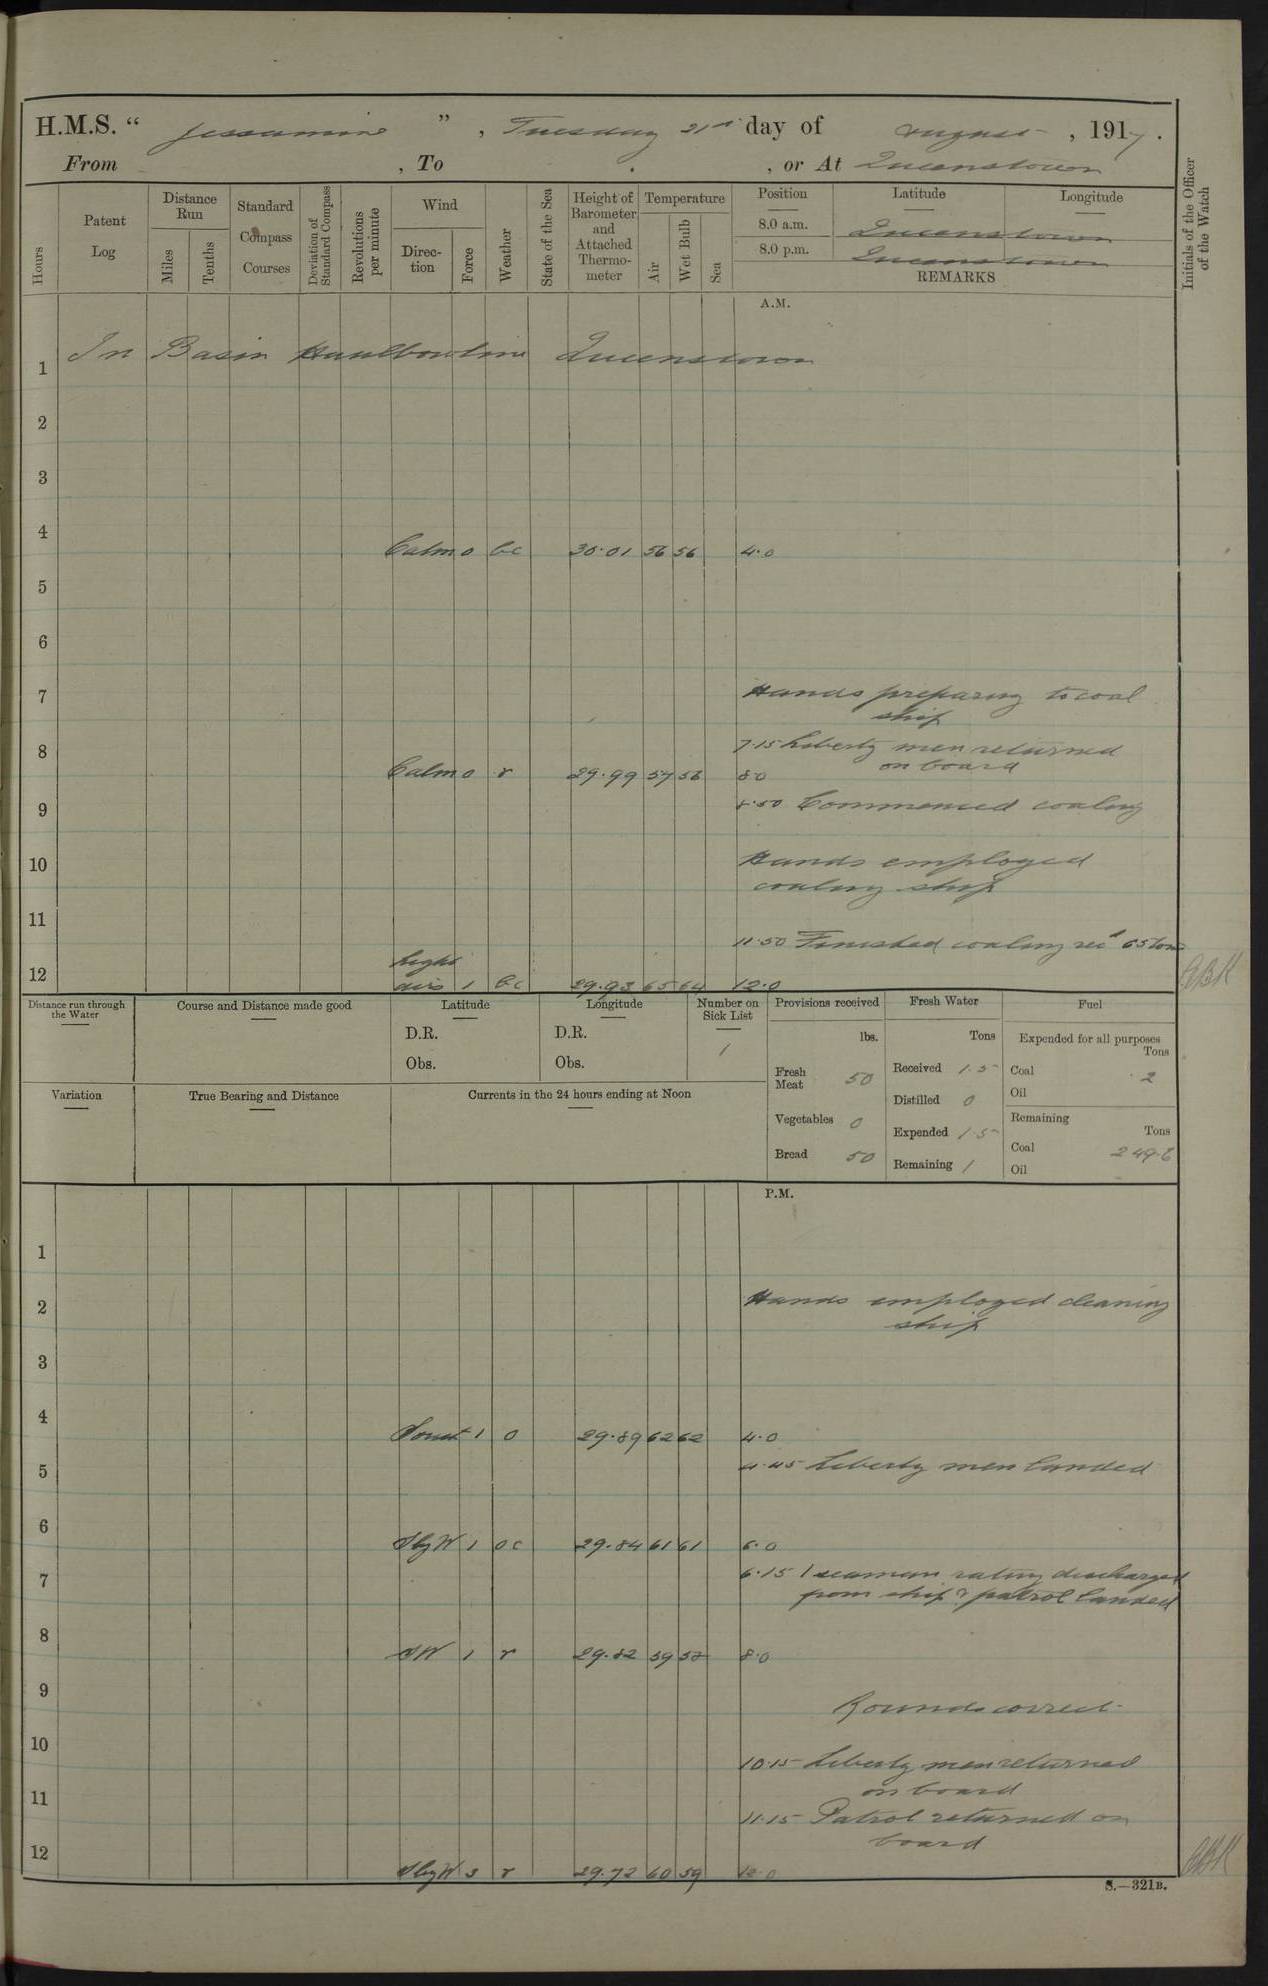 H.M.S. “ Jessamine ” , Tuesday 21st day of August , 1917 .
From , To , or At Queenstown
Hours
Patent Log
Distance Run
Miles
Tenths
Standard Compass Courses
Deviation of Standard Compass
Revolutions per minute
Wind
Direc-tion
Force
Weather
State of the Sea
Height of Barometer and Attached Thermo-meter
Temperature
Air
Wet Bulb
Sea
Position
Latitude
Longitude
8.0 a.m. Queenstown
8.0 p.m. Queenstown
REMARKS
Initials of the Officer of the Watch
A.M.
1 In Basin Haulbowline Queenstown
2
3
4 Calm 0 bc 30.01 56 56 4.0
5
6
7 Hands preparing to coal
ship
7.15 Liberty men returned
on board
8 Calm 0 r 29.99 57 56 8.0
8.50 Commenced coaling
9
10 Hands employed
coaling ship
11
11.50 Finished coaling recd 65 tons
12 Light airs 1 bc 29.93 65 64 12.0
Distance run through the Water
Course and Distance made good
Latitude
D.R.
Obs.
Longitude
D.R.
Obs.
Number on Sick List
1
Provisions received
lbs.
Fresh Meat 50
Vegetables 0
Bread 50
Fresh Water
Tons
Received 1.5
Distilled 0
Expended 1.5
Remaining 1
Fuel
Expended for all purposes
Tons
Coal 2
Oil
Remaining
Tons
Coal 249.6
Oil
Variation
True Bearing and Distance
Currents in the 24 hours ending at Noon
P.M.
1
2 Hands employed cleaning
ship
3
4 South 1 o 29.89 62 62 4.0
4.45 Liberty men landed
5
6 SbyW 1 oc 29.84 61 61 6.0
6.15 1 seaman rating discharged
7 from ship & patrol landed
8 SW 1 r 29.82 59 58 8.0
9
Rounds correct
10
10.15 Liberty men returned
on board
11
11.15 Patrol returned on
board
12 SbyW 3 r 29.72 60 59 12.0
S.—321B.